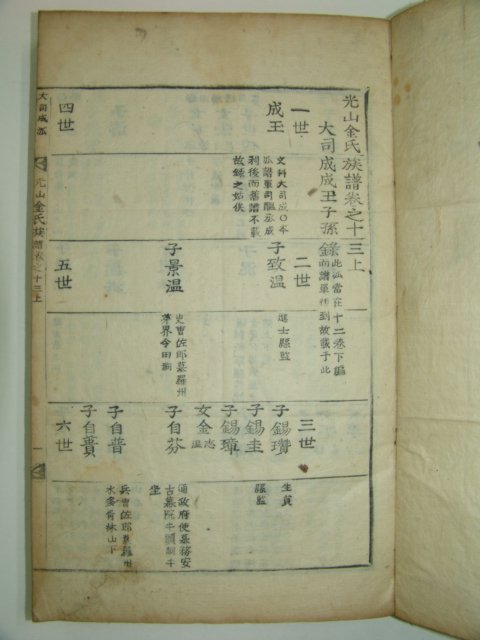 光山金氏族譜卷之十三上
大司成成丑子孫錄
此派當在十二卷下編
而譜單初到故載于此
一世
成丑
文科大司成○本
派譜單司醞丞成
剎後而舊譜不載
故錄之姑俟
二世
子致溫
進士縣監
三世
子錫瓚
生員
子錫圭
縣監
子錫璋
女金志溫
四世
子景溫
吏曹佐郎墓羅州
茅界令田洞
五世
子自芬
通政府使墓務安
古墓院牛頭洞午
坐
子自普
兵曹佐郎墓羅州
水多背林山下
子自賁
六世
大司成派
光山金氏族譜卷之十三上
一